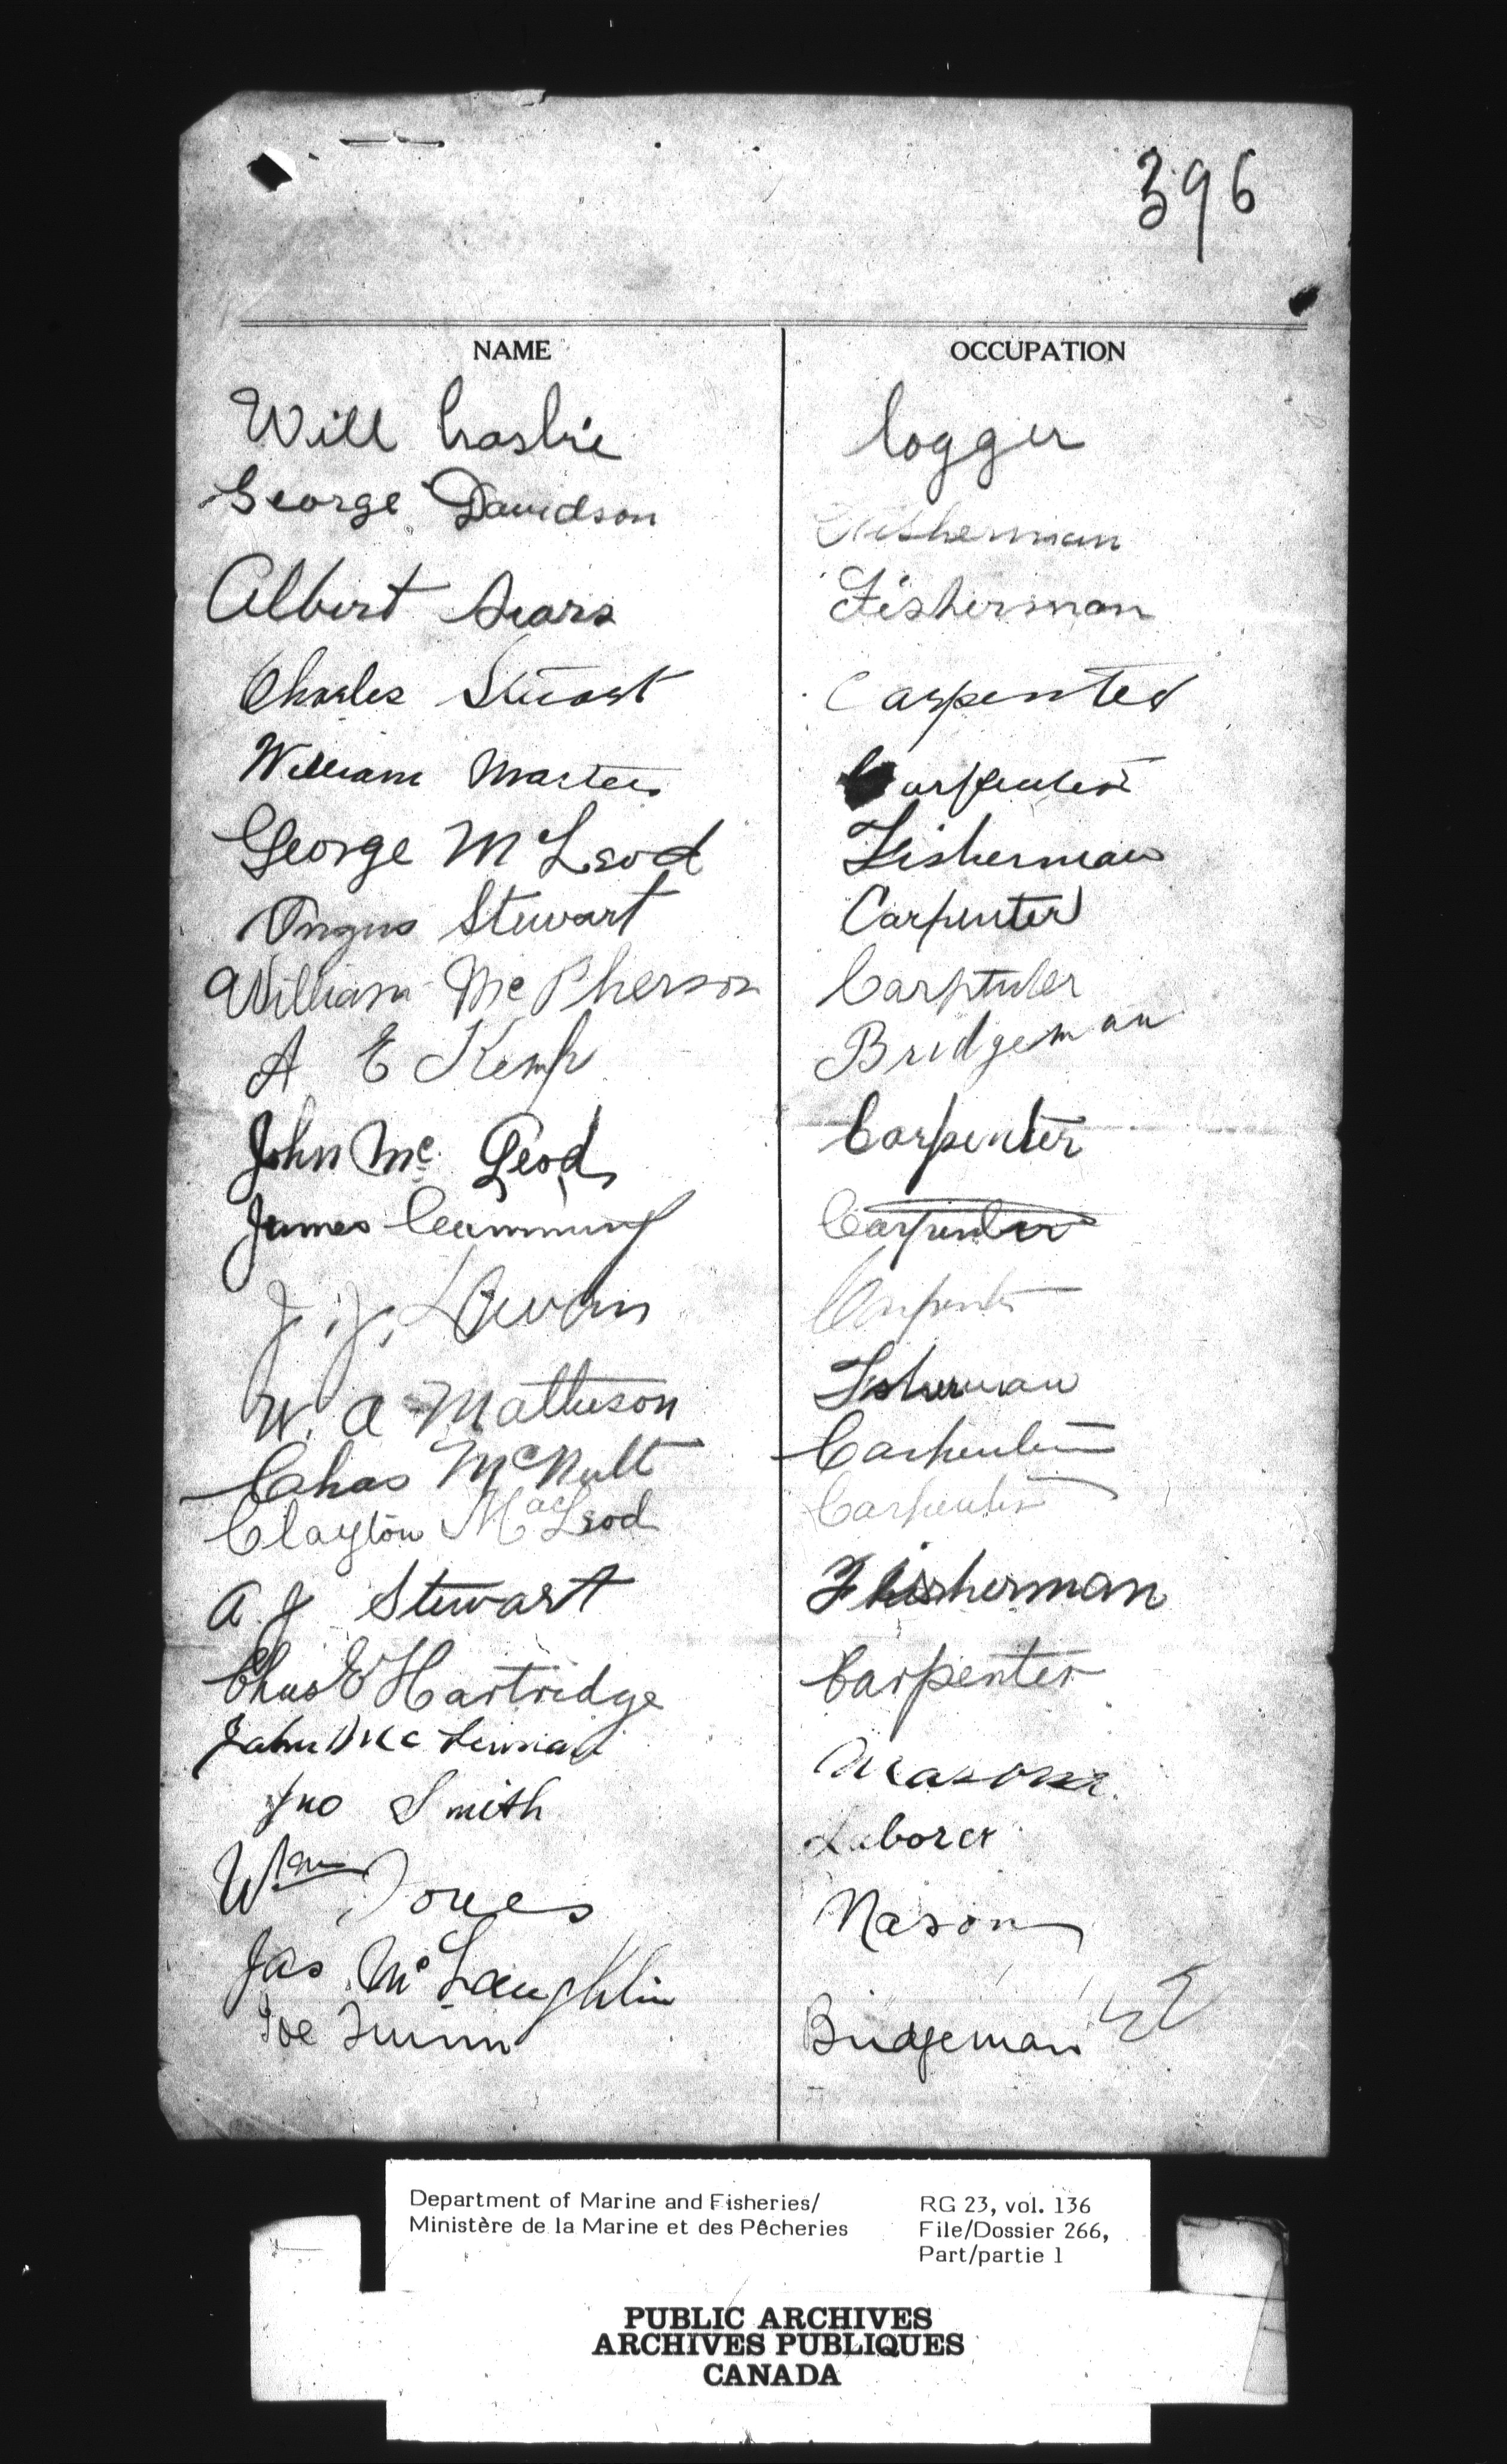 396
NAME OCCUPATION
Will Crosbie logger
George Davidson Fisherman
Albert Sears Fisherman
Charles Stuart Carpenter
William Carpenter
George McLeod Fisherman
Angus Stewart Carpenter
William McPherson Carptuler
A E Kemp Bridgeman
John Mc Leod Carpenter
James Cumming Carpenter
J. J. Carpenter
W. A Matheson Fisherman
Chas McNult Carpenter
Clayton MacLeod Carpenter
A. J Stewart Fisherman
Chas E Hartridge Carpenter
John McLennan Mason
Jno Smith Laborer
Wm Jones Mason
Jas McLaughlin
Joe Bridgeman
Department of Marine and Fisheries/ RG 23, vol. 136
Ministère de la Marine et des Pêcheries File/Dossier 266,
Part/partie 1
PUBLIC ARCHIVES
ARCHIVES PUBLIQUES
CANADA